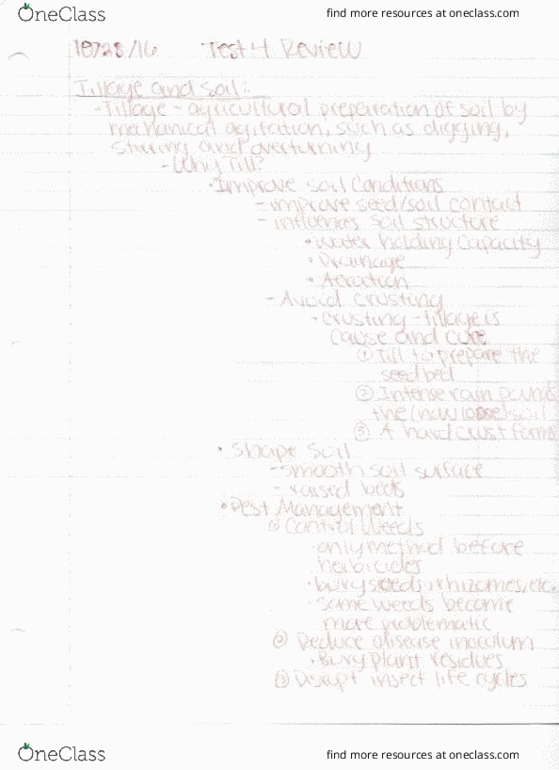 OneClass
find more resources at oneclass.com
10/28/16 Test 4 Review
Tillage and soil:
- Tillage - agricultural preparation of soil by
mechanical agitation, such as digging,
stirring and overturning
- Why Till?
• Improve soil conditions
- improve seed/soil contact
- influences soil structure
• water holding capacity
• Drainage
• Aeration
- Avoid crusting
• crusting - tillage is
cause and cure
① Till to prepare the
seedbed
② Intense rain pounds
the (now loose) soil
③ A hard crust forms
• Shape Soil
- smooth soil surface
- raised beds
• Pest Management
① Control Weeds
• only method before
herbicides
• bury seeds, rhizomes, etc.
• some weeds become
more problematic
② Reduce disease inoculum
• Bury plant residues
③ Disrupt insect life cycles
OneClass
find more resources at oneclass.com